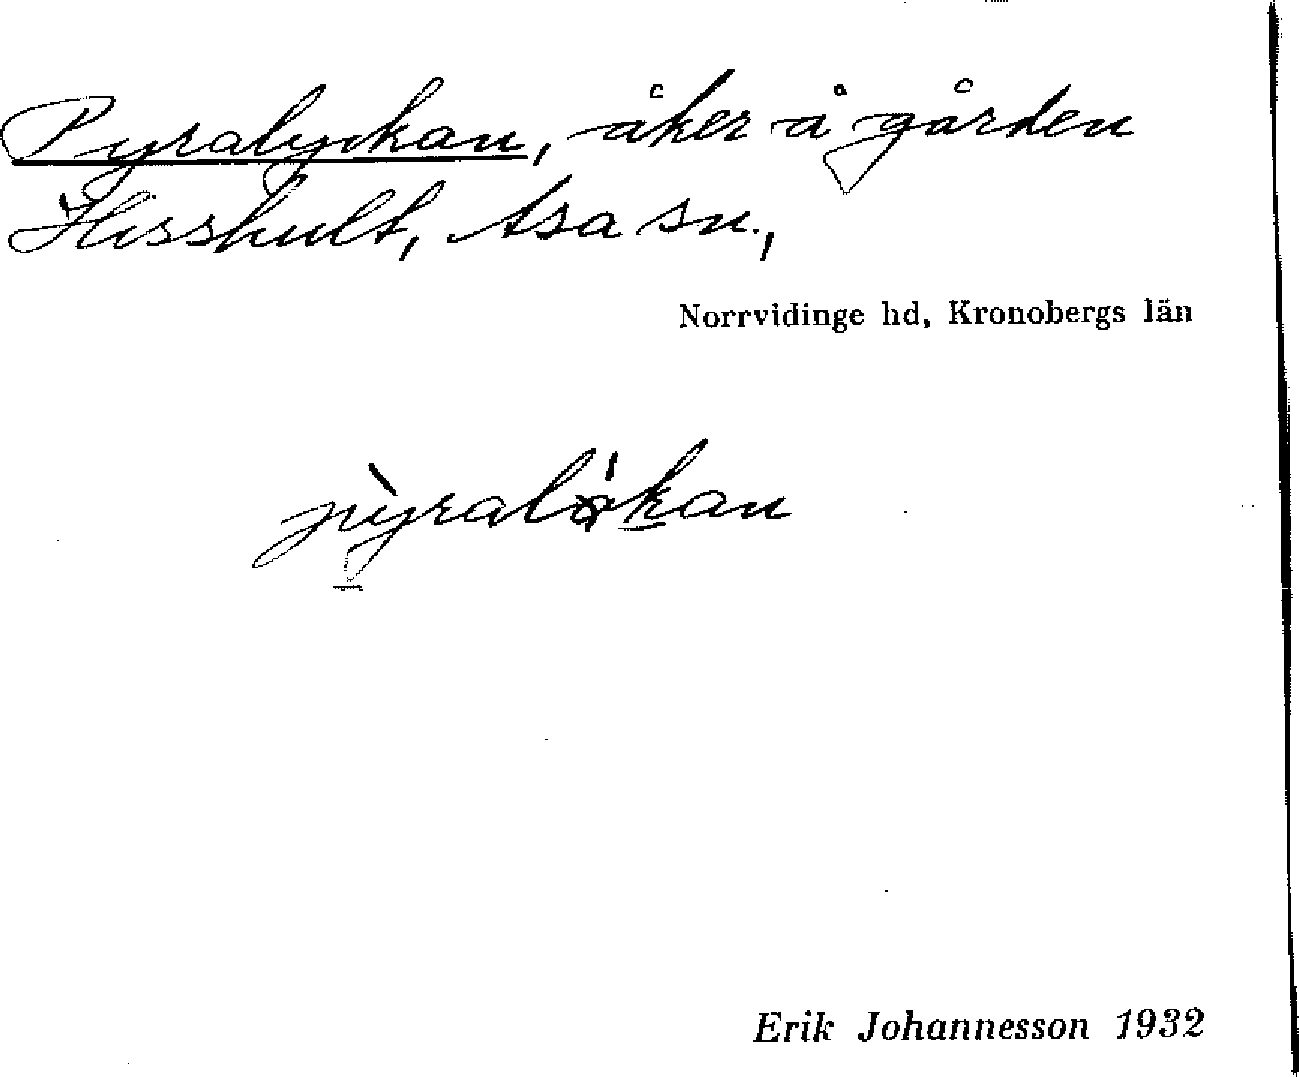 Pyralyckan, åker å gården
Hisshult, Asa sn.,
Norrvidinge hd, Kronobergs län
Erik Johannesson 1932